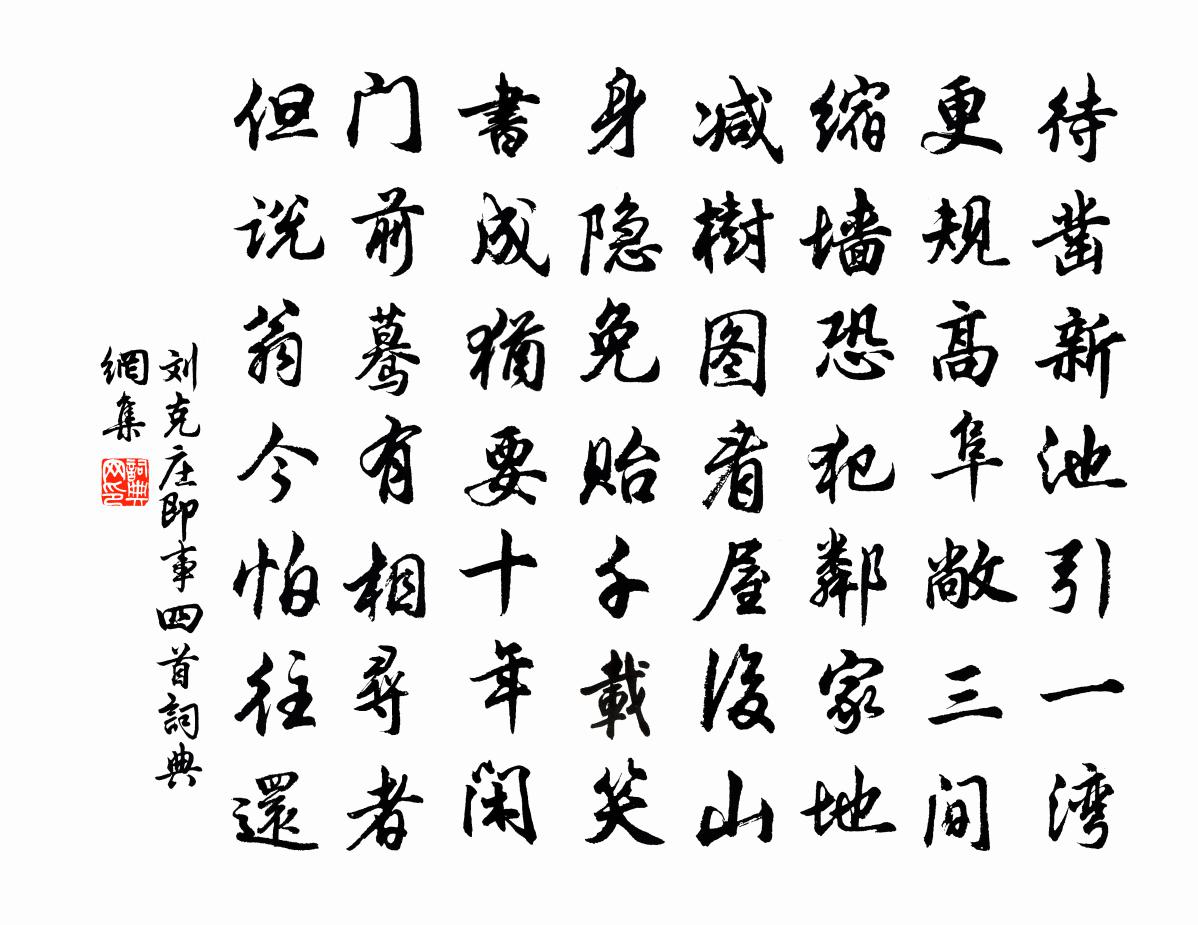 待凿新池引一湾
更规高阜敞三间
缩墙恐犯鄰家地
减樹图看屋後山
身隐免贻千載笑
書成猶要十年闲
门前蓦有相尋者
但说翁今怕往還
刘克庄即事四首詞典
網集
詞典
网印